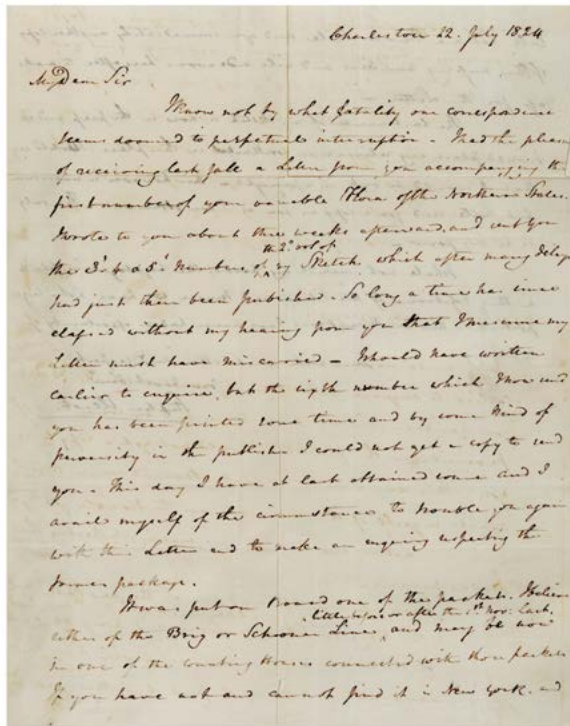 Charleston 22. July 1824
My Dear Sir
I know not by what fatality our correspondence
seems doomed to perpetual interruption - I had the pleasure
of receiving last fall a Letter from you accompanying the
first number of your valuable Flora of the Northern States.
I wrote to you about three weeks afterward, and sent you
the 2d vol of
the 3d 4 & 5 Numbers of my Sketch, which after many delays
had just then been published. So long a time has since
elapsed without my hearing from you that I presume my
Letter must have miscarried - I should have written
earlier to enquire, but the sixth number which I now send
you has been printed some time and by some kind of
perversity in the publisher I could not get a copy to send
you - This day I have at last obtained some and I
avail myself of the circumstance to trouble you again
with this Letter and to make an enquiry respecting the
former package.
It was put on board one of the packets. I believe
little before or after the 1st Nov: last.
either of the Brig or Schooner Lines, and may be now
in one of the counting Houses connected with those packets
If you have not and cannot find it in New York. and